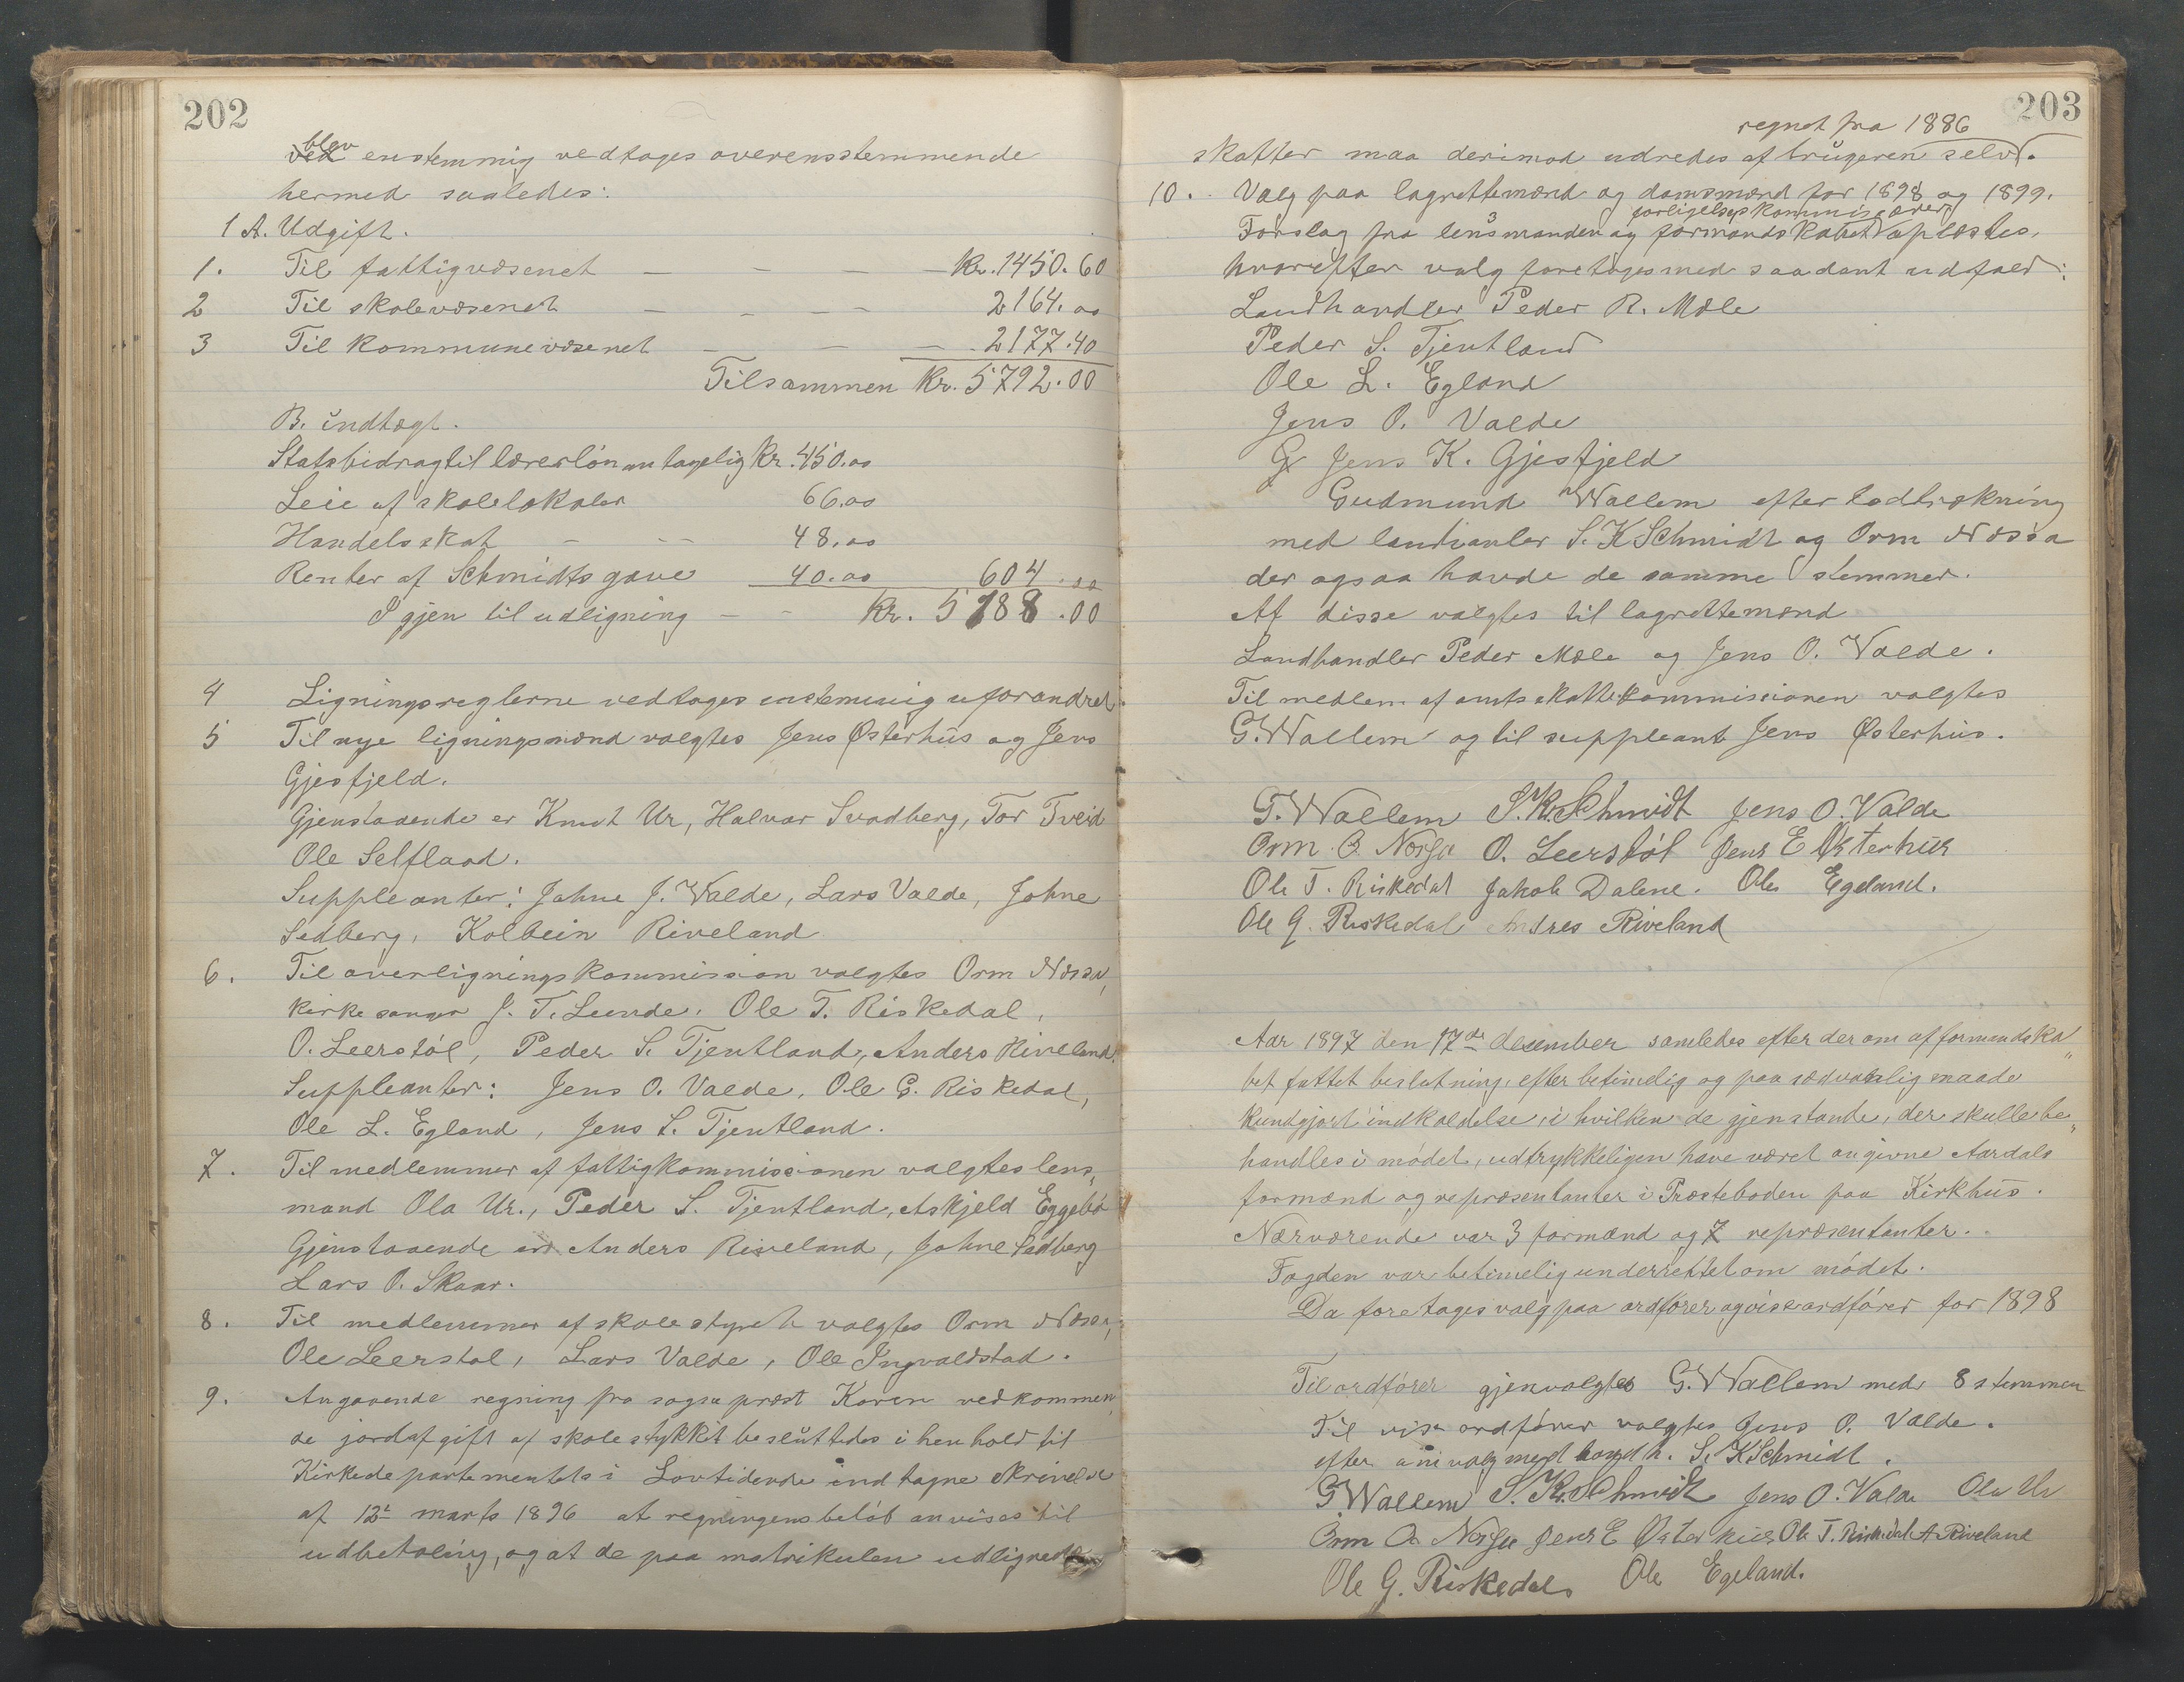 202
blev
ved enstemmig vedtages overensstemmende
hermed saaledes:
1 A. Udgift.
1. Til fattigvæsenet — — — — Kr. 1450.60
2 Til skolevæsenet — — — — 2164.00
3 Til kommunevæsenet — — — 2177.40
Tilsammen Kr. 5792.00
B. indtægt.
Statsbidrag til lærerløn antagelig Kr. 450.00
Leie af skolelokaler 66.00
Handelsskat — — 48.00
Renter af Schmidts gave 40.00 604.00
Igjen til udligning — — Kr. 5188.00
4 Ligningsreglerne vedtages enstemmig uforandret.
5 Til nye ligningsmænd valgtes Jens Østerhus og Jens
Gjesfjeld.
Gjenstaaende er Knut Ur, Halvar Svadberg, Tor Tveid
Ole Selfland.
Suppleanter: Johne J. Valde, Lars Valde, Johne
Sedberg, Kolbein Riveland
6. Til overligningskommission valgtes Orm Næssa,
kirkesanger J. T. Lunde. Ole T. Riskedal,
O. Leerstøl, Peder S. Tjentland, Anders Riveland.
Suppleanter: Jens O. Valde, Ole G. Riskedal,
Ole L. Egland, Jens S. Tjentland.
7. Til medlemmer af fattigkommissionen valgtes lens„
mand Ola Ur., Peder S. Tjentland, Askjeld Eggebø
Gjenstaaende er Anders Riveland, Johne Sedberg
Lars O. Skaar.
8. Til medlemmer af skolestyret valgtes Orm Næssa,
Ole Leerstøl, Lars Valde, Ole Ingvaldstad.
9. Angaaende regning fra sogneprest Koren vedkommen„
de jordafgift af skolestykket besluttedes i henhold til
Kirkedepartementets i Lovtidende indtagne skrivelse
af 12t marts 1896 at regningens beløb anvises til
udbetaling, og at de paa matrikulen udlignede
203
regnet fra 1886
skatter maa derimod udredes af brugeren selv.
10. Valg paa lagrettemænd og domsmænd for 1898 og 1899.
forligelseskommissærer
Forslag fra lensmanden og formandskabet oplæstes,
hvorefter valg foretoges med saadant udfald:
Landhandler Peder R. Mæle
Peder S. Tjentland
Ole L. Egland
Jens O. Valde
G Jens K. Gjesfjeld
Gudmund Wallem efter lodtrækning
med landhanler S. K Schmidt og Orm Næssa
der ogsaa havde de samme stemmer.
Af disse valgtes til lagrettemænd
Landhandler Peder Mæle og Jens O. Valde.
Til medlem af amtsskattekommissionen valgtes
G. Wallem og til suppleant Jens Østerhus.
G. Wallem S. K. Schmidt Jens O. Valde
Orm O. Næssa O. Leerstøl Jens E Østerhus
Ole T. Riskedal Jakob Dalene. Ole Egeland.
Ole G. Riskedal Andres Riveland
Aar 1897 den 17de desember samledes efter derom af formandska„
bet fattet beslutning, efter betimelig og paa sædvanlig maade
kundgjort indkaldelse, i hvilken de gjenstande, der skulle be„
handles i mødet, udtrykkeligen have været angivne Aardals
formænd og repræsentanter i Præsteboden paa Kirkhus.
Nærværende var 3 formænd og 7 repræsentanter.
Fogden var betimelig underrettet om mødet.
Da foretoges valg paa ordfører og viseordfører for 1898
Til ordfører gjenvalgtes G. Wallem med 8 stemmer
Til vise ordfører valgtes Jens O. Valde.
efter omvalg med landh. S. K Schmidt.
G Wallem S. K. Schmidt Jens O. Valde Ola Ur
Orm O Næssa Jens E Østerhus Ole T. Riskedal A Riveland
Ole G. Riskedal Ole Egeland.